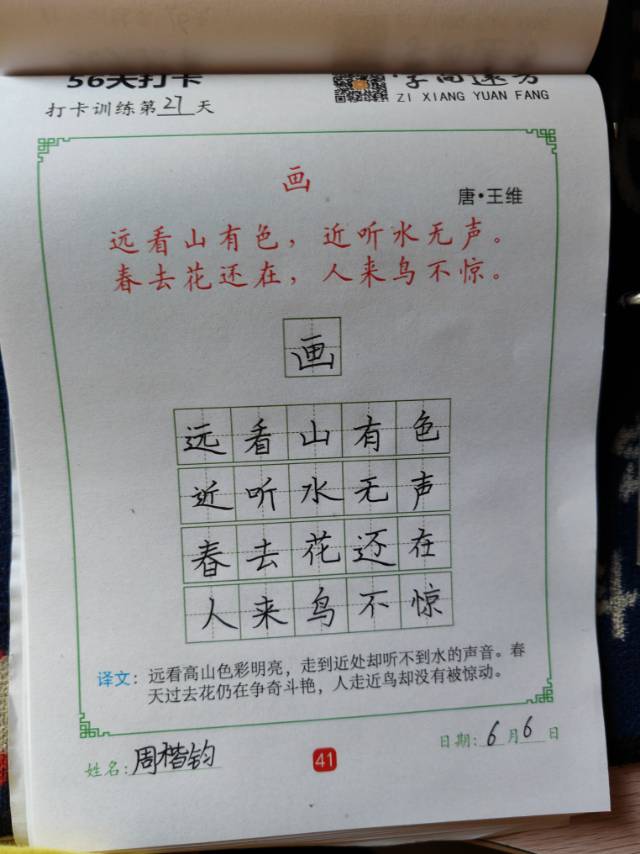 56天打卡
打卡训练第27天
ZI XIANG YUAN FANG
画
唐·王维
远看山有色，近听水无声。
春去花还在，人来鸟不惊。
画
远看山有色
近听水无声
春去花还在
人来鸟不惊
译文：远看高山色彩明亮，走到近处却听不到水的声音。春
天过去花仍在争奇斗艳，人走近鸟却没有被惊动。
姓名：周楷钧
41
日期：6月6日